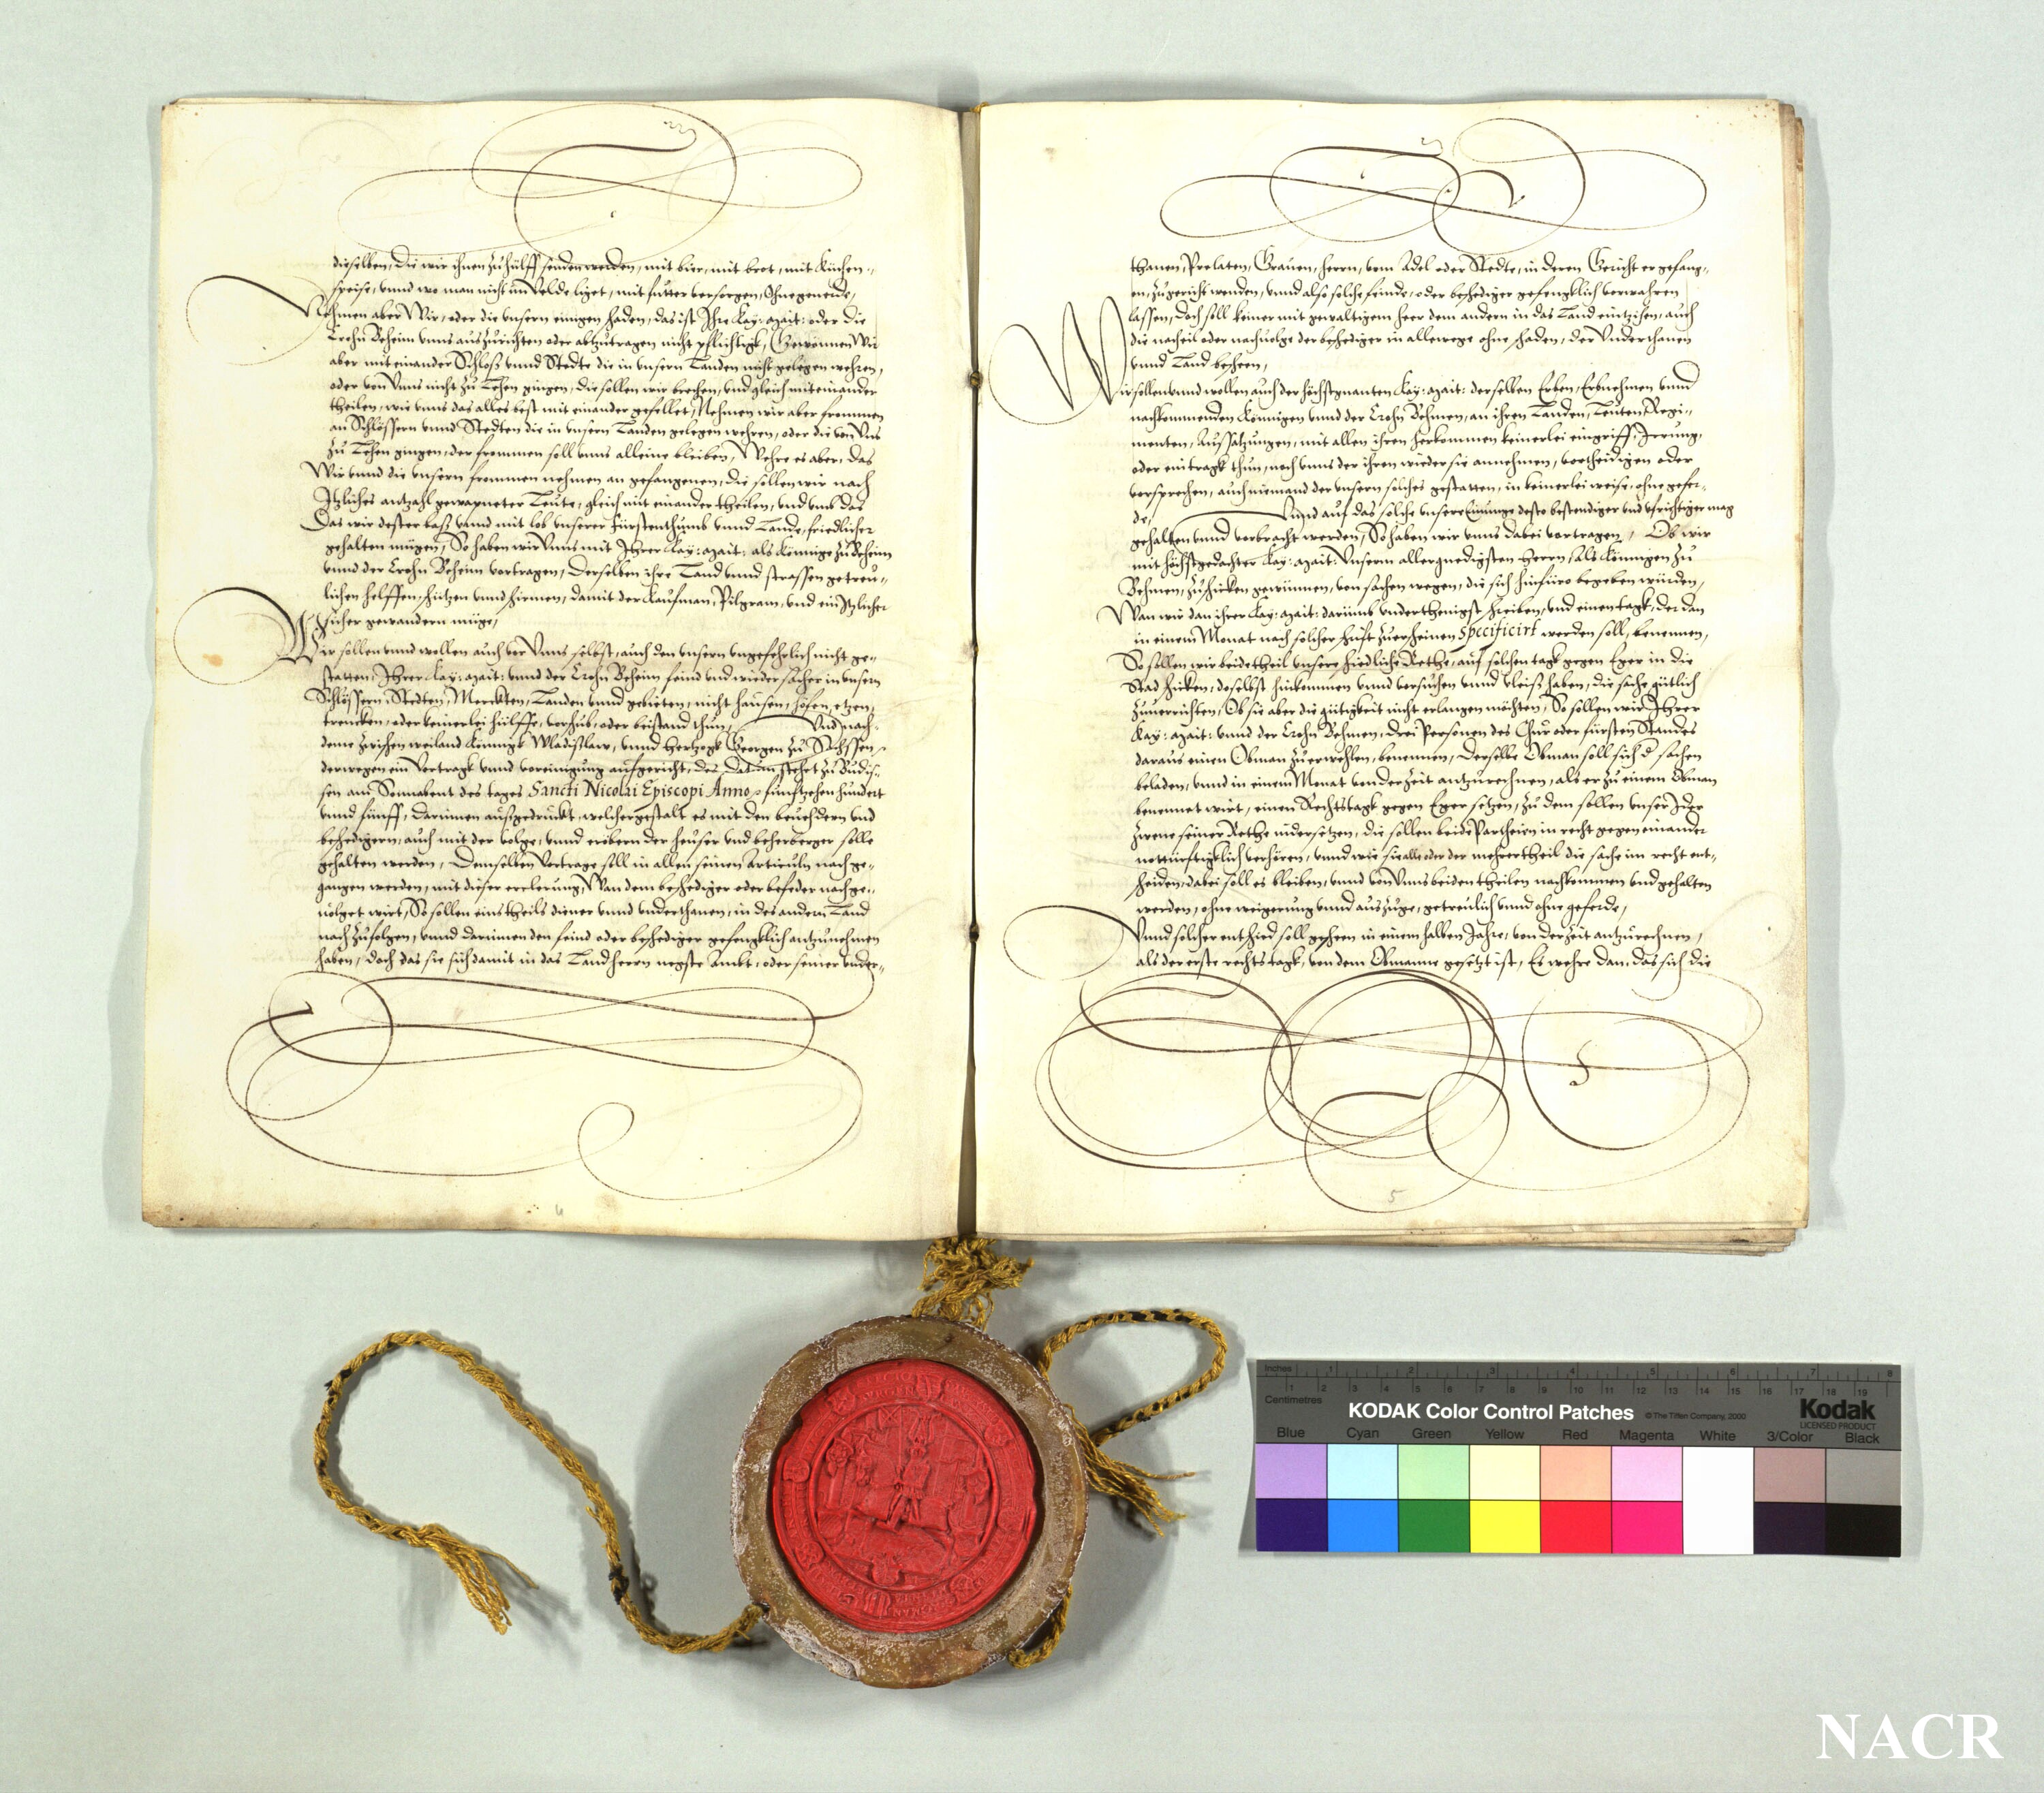 dieselben, die wir ihnen zu hülff senden werden, mit bier, mit brot, mit Küchen-
speise, vnnd wo man nicht im Velde liget, mit futter versorgen, Ohne geuerde,
Nehmen aber Wir, oder die vnsern einigen schaden, das ist Ihre Kay: Mait: oder die
Crohn Beheim vnns auszurichten oder abzutragen nicht pflichtigk, Gewönnen Wir
aber mit einander Schloß vnnd Stedte die in vnsern Landen nicht gelegen wehren,
oder von Vnns nicht zu Lehen giengen, die sollen wir brechen, vnd gleich mit einander
theilen, wie vnns das alles best mit einander gefellet, Nehmen wir aber frommen
an Schlössern vnnd Stedten die in vnsern Landen gelegen wehren, oder die von Vns
zu Lehen gingen, der frommen soll vnns alleine bleiben, Wehre es aber, das
Wir vnnd die vnsern frommen nehmen an gefangenen, die sollen wir nach
Itzliches antzahl gewapneter Leute, gleich mit einander theilen, vnd vmb das
Das wir dester baß vnnd mit lob vnserer Fürstenthumb vnnd Lande, friedlicher
gehalten mügen, So haben wir Vnns mit Ihrer Kay: Mait: als Könnige zu Beheim
vnnd der Crohn Beheim vortragen, Derselben ihre Land vnnd strassen getreu-
lichen helffen, schützen vnnd schirmen, damit der Kaufman, Pilgram, vnd ein Itzlicher
sicher gewandern müge,
Wir sollen vnnd wollen auch vor Vnns selbst, auch den vnsern vngefehrlich nicht ge-
statten, Ihrer Kay: Mait: vnnd der Crohn Beheim feind vnd wiedersacher in vnsern
Schlössern, Stedten, Merckten, Landen vnnd gebieten, nicht hausen, hofen, etzen,
trencken, oder keinerlei hülffe, vorschub, oder beistand thun, Vnd nach
deme zwischen weiland Könnigk Wladißlaw, vnnd Hertzogk Georgen zu Sachssen
derwegen ein Vertragk vnnd voreinigung aufgericht, des Datum stehet zu Budis-
sen am Sonnabent des tages Sancti Nicolai Episcopi Anno funftzehen hundert
vnnd fünff, Darinnen außgedruckt, welchergestalt es mit den beuehdern vnd
beschedigern, auch mit der volge, vnnd erobern der heuser vnd beherberger solle
gehalten werden, Demselben Vertrage soll in allen seinen Articuln nach ge-
gangen werden, mit dieser erclerung, Wan dem beschediger oder befeder nachge-
uolget wirt, So sollen eins theils diener vnnd vnderthanen, in des andern Land
nach zufolgen, vnnd darinnen den feind oder beschediger gefengklich antzunehmen
haben, doch das sie sich damit in das Landherrn negste Ambt, oder seiner vnder-
thanen, Prelaten, Grauen, Herrn, vom Adel oder Stedte, in deren Gericht er gefang-
en, zugericht wenden, vnnd also solche feinde, oder beschediger gefengklich verwahren
lassen, Doch soll keiner mit gewaltigem heer dem andern in das Land eintzihen, auch
die nacheil oder nachuolge der beschediger in allewege ohne schaden, der Vnderthanen
vnnd Land bescheen,
Wir sollen vnnd wollen auch der höchstgnanten Kay: Mait: derselben Erben, Erbnehmen vnnd
nachkommenden Könnigen vnnd der Crohn Behmen, an ihren Landen, Leuten, Regi-
menten, Aussatzungen, mit allen ihren herkommen keinerlei eingriff, Irrung,
oder eintragk thun, noch vnns der ihren wieder sie annehmen, vortheidigen oder
versprechen, auch niemand der vnsern solches gestatten, in keinerlei weise, ohne gefer-
de, Vnnd auf das solche vnsere Einunge desto bestendiger vnd vfrichtiger mag
gehalten vnnd vorbracht werden, So haben wir vnns dabei vortragen, Ob wir
mit höchstgedachter Kay: Mait: Vnserm allergnedigsten Herrn, als Könnigen zu
Behmen, zuschicken gewünnen, von sachen wegen, die sich hinfüro begeben würden,
Wan wir dan ihrer Kay: Mait: darumb vnderthenigst schreiben, vnd einen tagk, der dan
in einem Monat nach solcher schrift zuerscheinen specificirt werden soll, benennen,
So sollen wir beidetheil vnsere schiedliche Rethe, auf solchen tagk gegen Eger in die
Stad schicken, doselbst hinkommen vnnd versuchen vnnd vleis haben, die sache gütlich
zuuerrichten, Ob sie aber die gütigkeit nicht erlangen möchten, So sollen wir Ihrer
Kay: Mait: vnnd der Crohn Behmen, drei Personen des Chur oder fürsten Standes
daraus einen Obman zuerwehlen, benennen, Derselbe Obman soll sich d sachen
beladen, vnnd in einem Monat von der zeit antzurechnen, als er zu einem Obman
benennet wirt, einen Rechtstagk gegen Eger setzen, zu dem sollen vnser Jder
zwene seiner Rethe nidersetzen, die sollen beide Partheien in recht gegen einander
notturftigklich verhören, vnnd wie sie alle oder der mehrertheil die sache im recht ent-
scheiden, dabei soll es bleiben, vnnd von Vnns beiden theilen nachkommen vnd gehalten
werden, ohne weigerung vnnd auszüge, getreulich vnnd ohne geferde,
Vnnd solcher entschied soll geschen in einem halben Jahre, von der zeit antzurechnen,
als der erste rechtstagk, von dem Obmanne gesetzt ist, Es wehre dan, das sich die
4
5
Inches 1 2 3 4 5 6 7 8
Centimetres 1 2 3 4 5 6 7 8 9 10 11 12 13 14 15 16 17 18 19
KODAK Color Control Patches © The Tiffen Company, 2000 Kodak
LICENSED PRODUCT
Blue Cyan Green Yellow Red Magenta White 3/Color Black
NACR